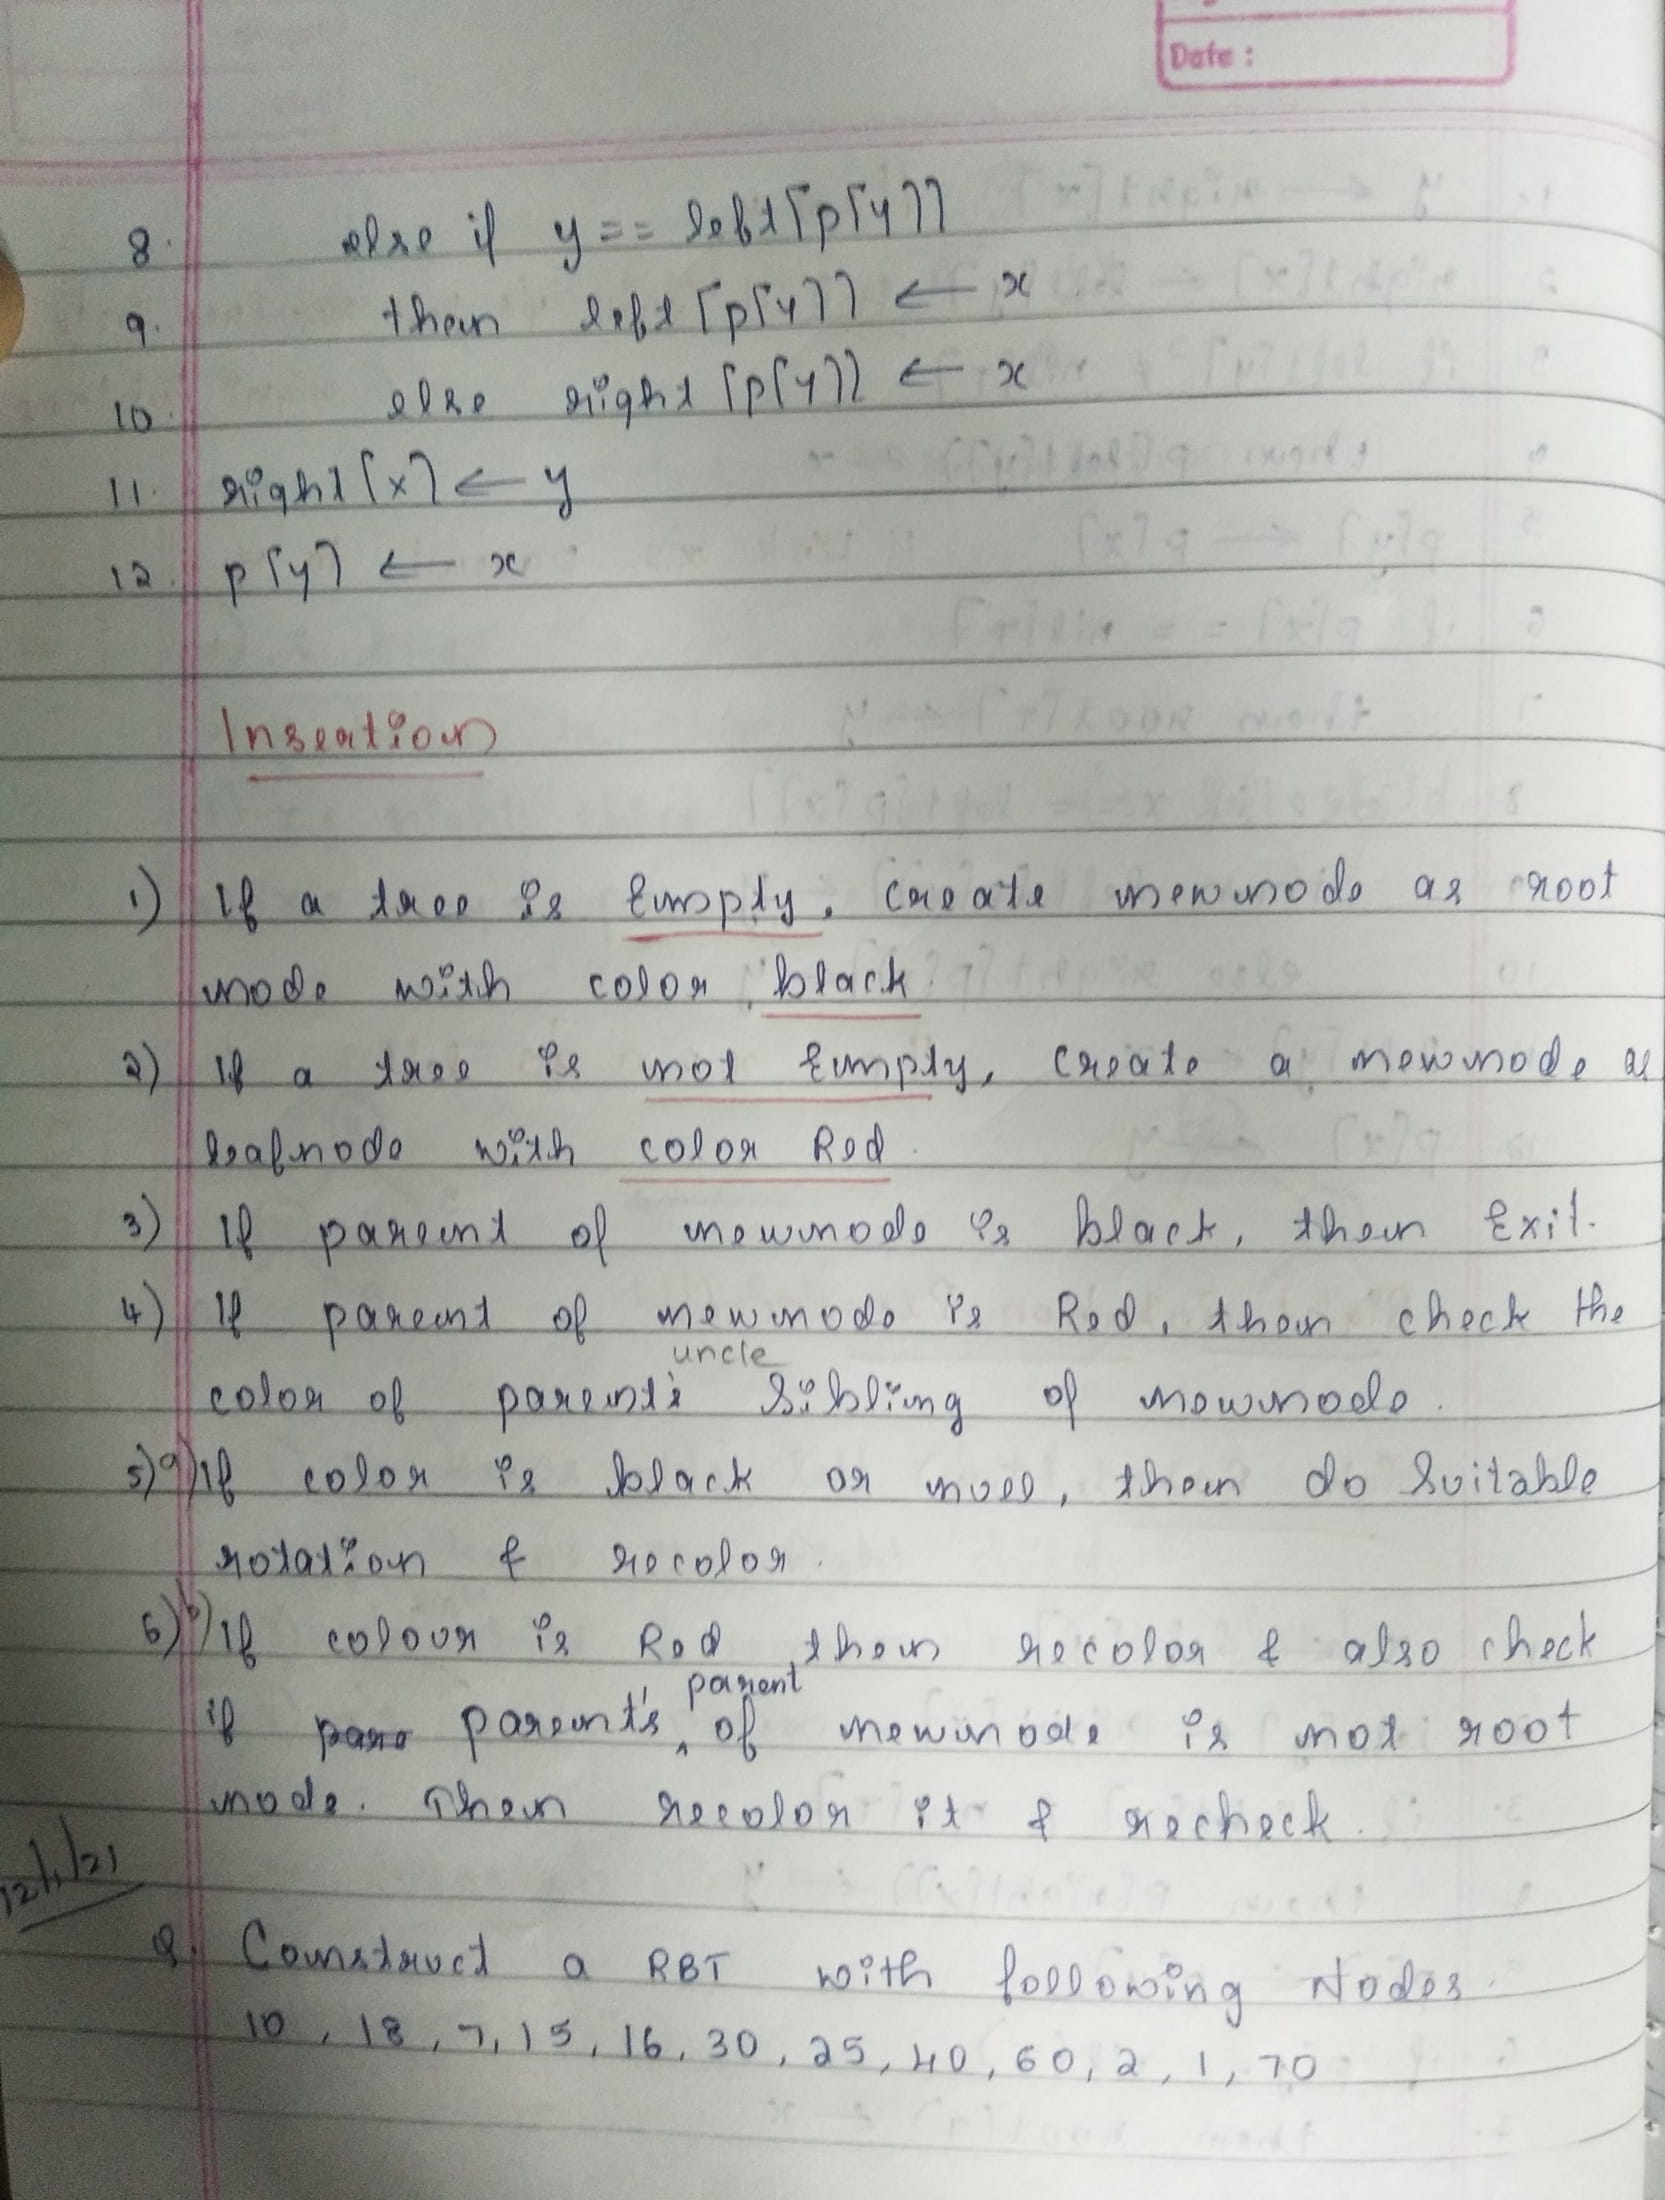 Date :
8. else if y == left[p[y]]
9. then left[p[y]] ← x
10. else right[p[y]] ← x
11. right[x] ← y
12. p[y] ← x
Insertion
1) If a tree is Empty, create newnode as root
node with color black.
2) If a tree is not Empty, create a newnode as
leafnode with color Red.
3) If parent of newnode is black, then Exit.
4) If parent of newnode is Red, then check the
uncle
color of parent's Sibling of newnode.
5) a) If color is black or null, then do Suitable
rotation & recolor.
6) b) If colour is Red then recolor & also check
parent
if para parent's ‸ of newnode is not root
node. Then recolor it & recheck.
12/1/21
Q. Construct a RBT with following Nodes.
10, 18, 7, 15, 16, 30, 25, 40, 60, 2, 1, 70